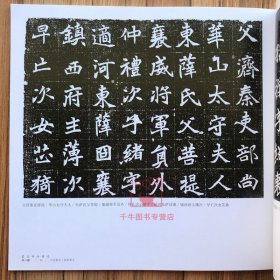 父濟秦吏部尚
華山太守夫人
東薛氏父菩提
襄威將軍員外
仲禮次子緒字
適河東薛回襄
鎮西府主薄次
早亡次女芷猗
千牛图书专营店